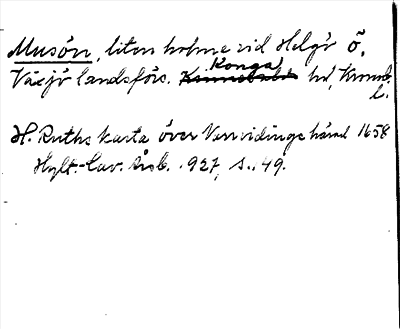 Musön, liten holme vid Helgö ö,
Konga
Växjö landsförs. Kinnevalds hd, Kronob.
l.
H. Ruths karta över Norrvidinge härad 1658
Hylt.-Cav. årsb. 1927, s. 49.